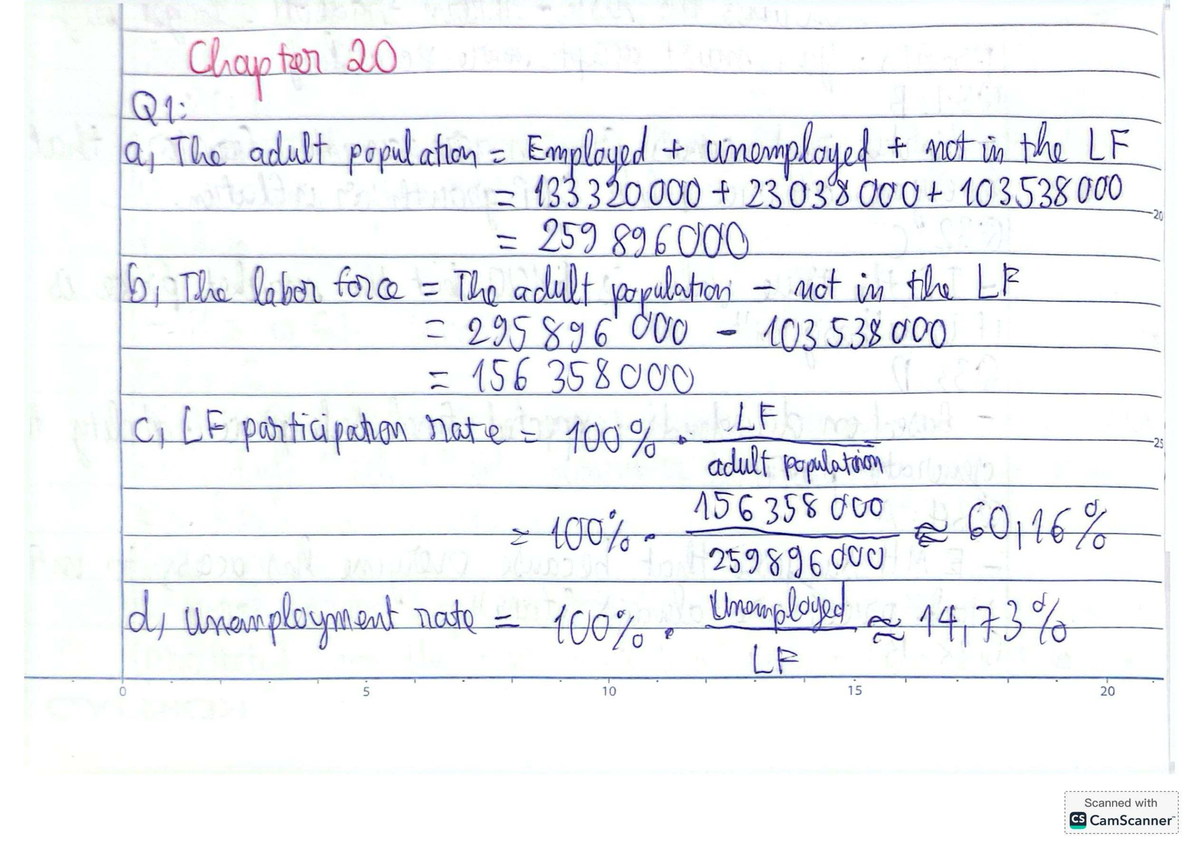 Chapter 20
Q1:
a, The adult population = Employed + unemployed + not in the LF
= 133 320 000 + 23 038 000 + 103 538 000
= 259 896 000
b, The labor force = The adult population - not in the LF
= 295 896 000 - 103 538 000
= 156 358 000
c, LF participation rate = 100% . LF / adult population
= 100% . 156 358 000 / 259 896 000 ≈ 60,16%
d, Unemployment rate = 100% . Unemployed / LF ≈ 14,73%
0 5 10 15 20
20
25
Scanned with
CS CamScanner